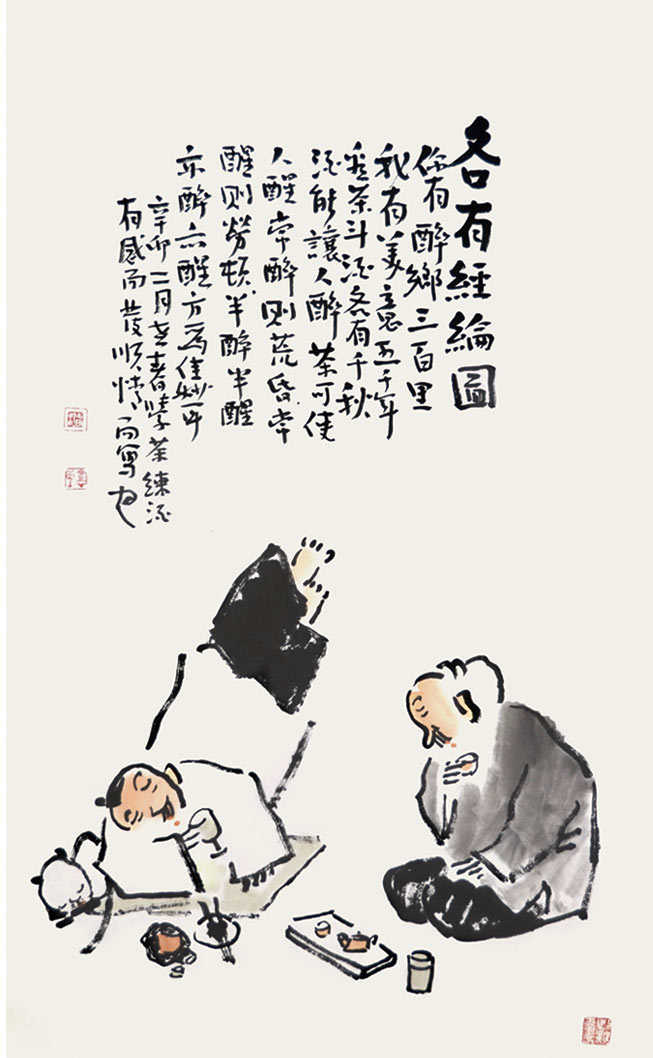 各有經綸圖
你有醉鄉三百里
我有美意五千年
茶斗酒各有千秋
酒能讓人醉茶可使
人醒常醉則荒昏常
醒則勞頓半醉半醒
亦醉亦醒方爲佳妙耳
辛卯二月春學茶練酒
有感而發順情而寫也